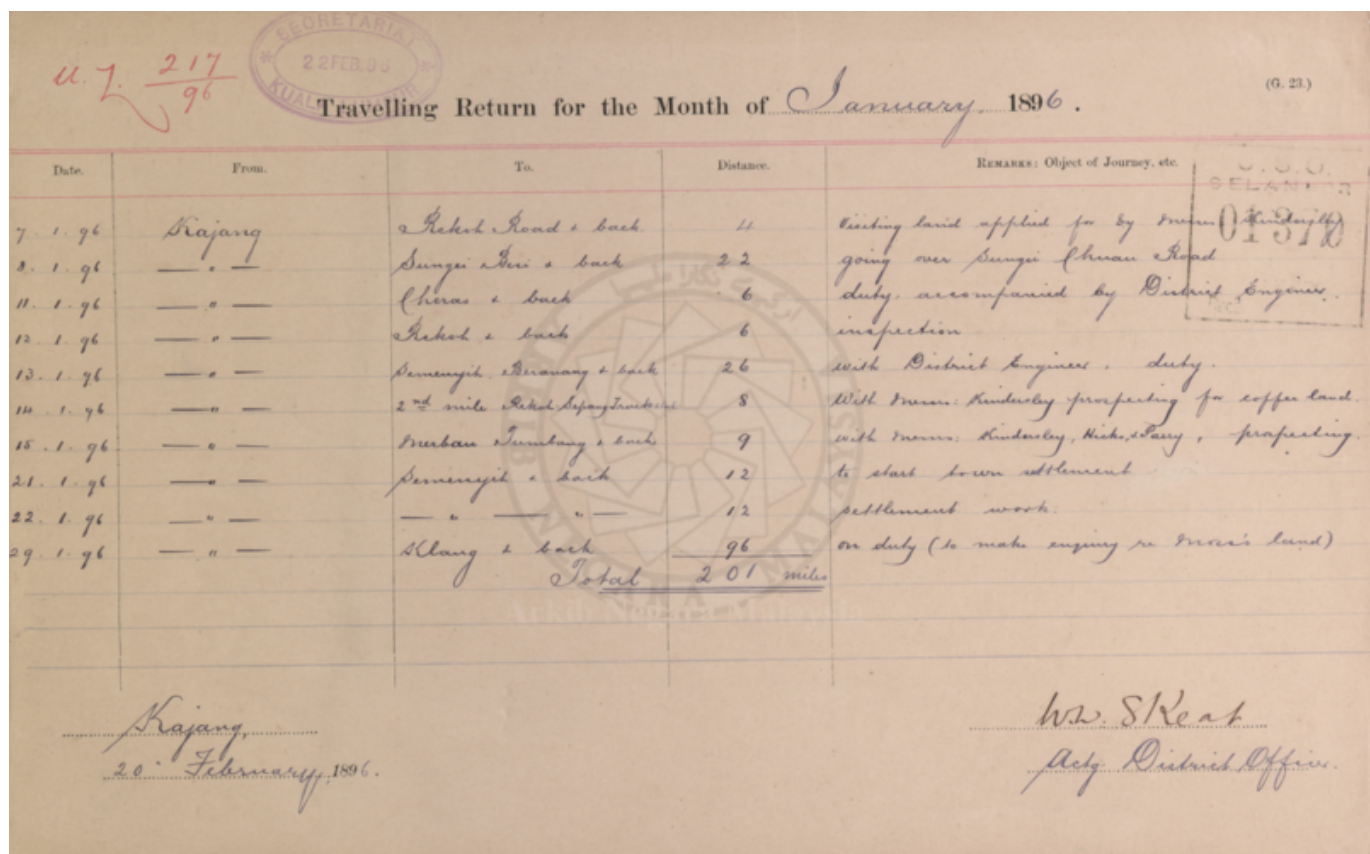 U.L. 217/96
SECRETARIAT
22 FEB. 96
KUALA LUMPUR
(G. 23.)
Travelling Return for the Month of January 1896.
Date. From. To. Distance. REMARKS: Object of Journey, etc.
SELANGOR
7.1.96 Kajang Rekoh Road & back 4 Visiting land applied for by Messrs Kindersley
8.1.96 — " — Sungei Besi & back 22 going over Sungei Chuau Road
11.1.96 — " — Cheras & back 6 duty, accompanied by District Engineer.
12.1.96 — " — Rekoh & back 6 inspection
13.1.96 — " — Semenyih, Beranang & back 26 with District Engineer, duty.
14.1.96 — " — 2nd mile Rekoh Sepang Trace & back 8 With Messrs: Kindersley prospecting for coffee land.
15.1.96 — " — Merbau Tumbang & back 9 with Messrs: Kindersley, Hicks, & Parry, prospecting.
21.1.96 — " — Semenyih & back 12 to start town settlement
22.1.96 — " — — " — — " — 12 settlement work.
29.1.96 — " — Klang & back 96 on duty (to make enquiry re land)
Total 201 miles
Arkib Negara Malaysia
Kajang,
20 February, 1896.
W.W. Skeat
Actg District Officer.